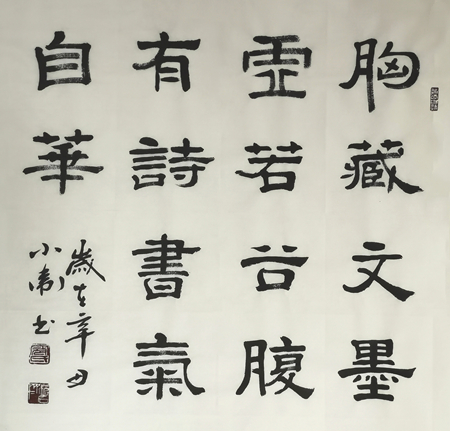 胸藏文墨
虚若谷腹
有詩書氣
自華
歲在辛丑
小衛书